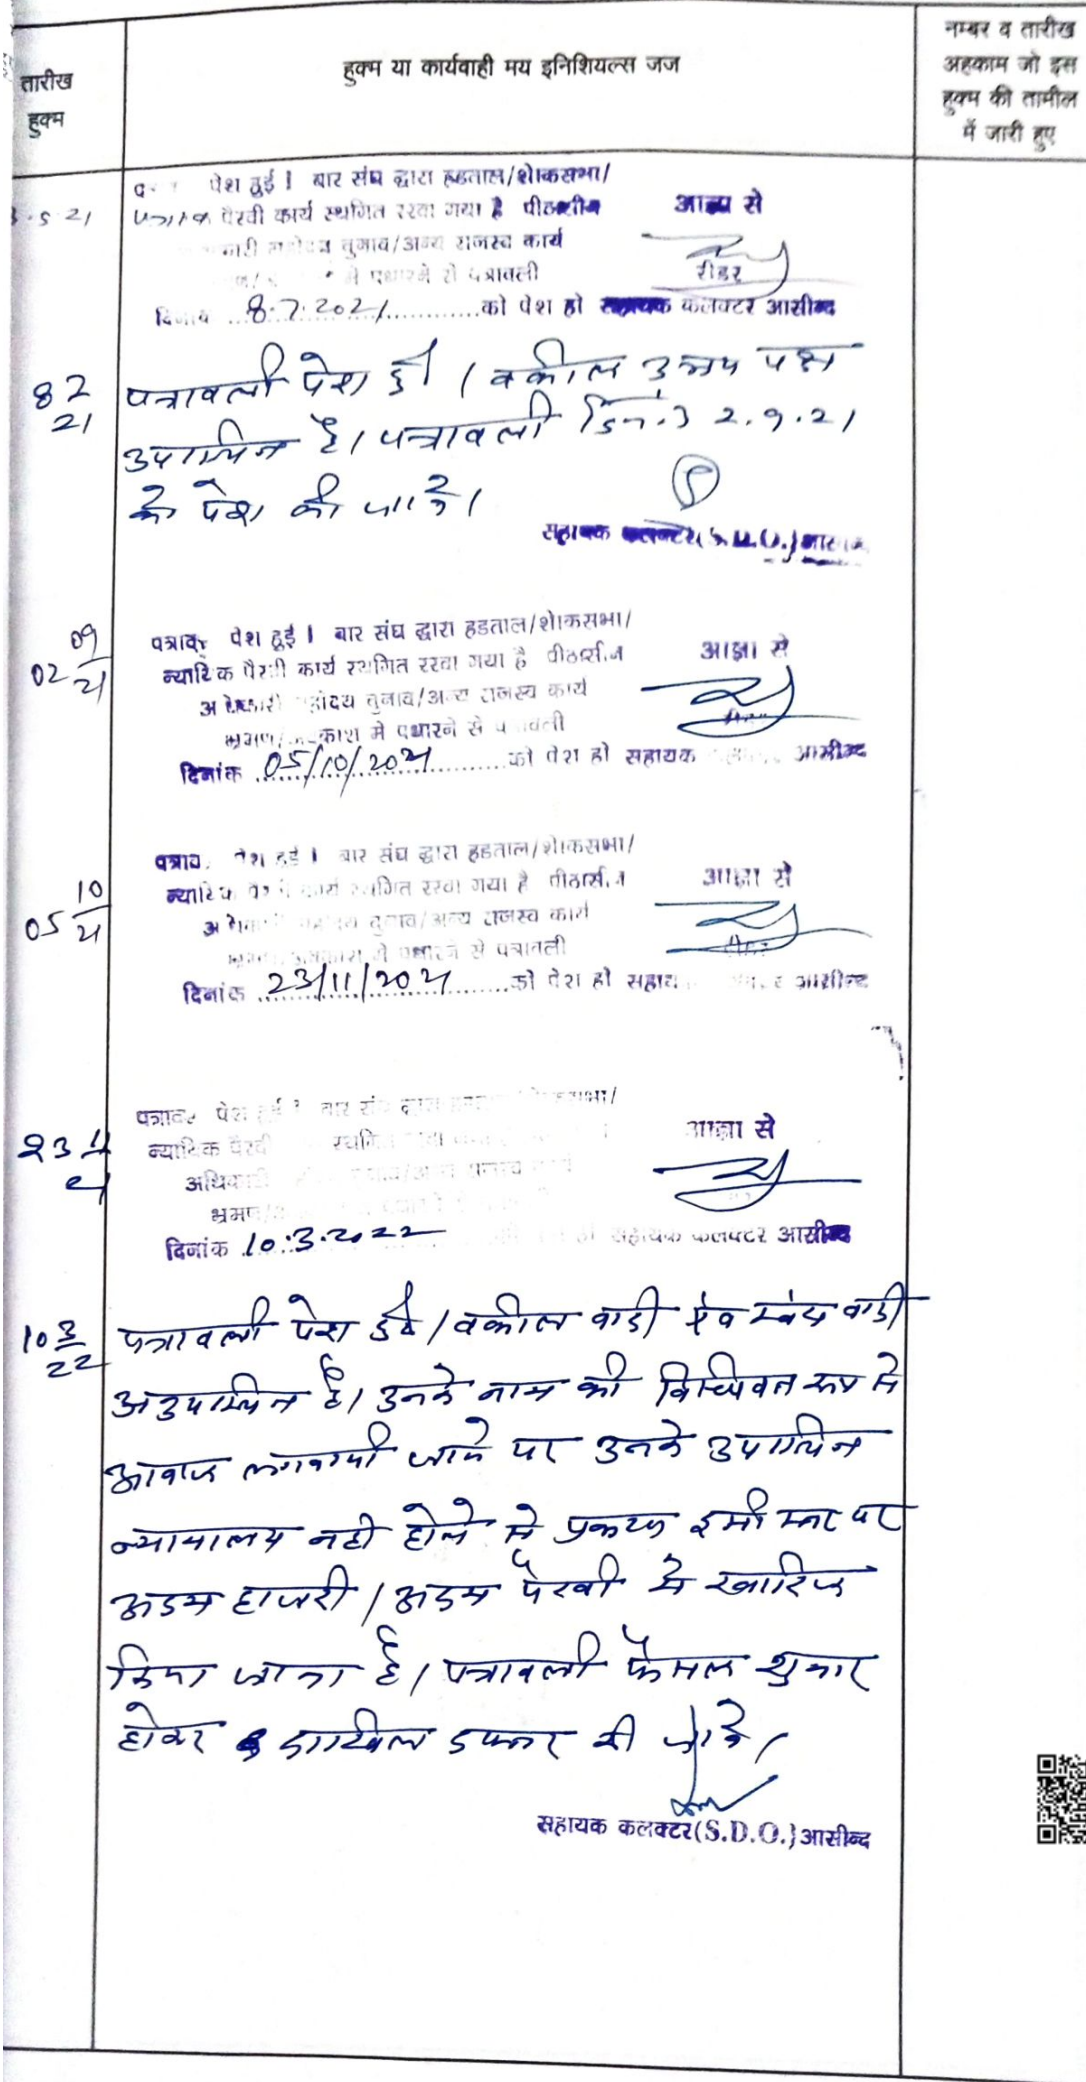 तारीख
हुक्म
हुक्म या कार्यवाही मय इनिशियल्स जज
नम्बर व तारीख
अहकाम जो इस
हुक्म की तामील
में जारी हुए
पेश हुई। बार संघ द्वारा हडताल/शोकसभा/
5 21 पैरवी कार्य स्थगित रखा गया है पीठासीन आज्ञा से
चुनाव/अन्य राजस्व कार्य
में पधारने से पत्रावली रीडर
दिनांक 8.7.2021 को पेश हो सहायक कलक्टर आसीन्द
8 7 21 पत्रावली पेश हुई। वकील उभय पक्ष
उपस्थित है। पत्रावली 2.9.21
को पेश की जावे।
सहायक कलक्टर(S.D.O.)
02 09 21 पत्राव पेश हुई। बार संघ द्वारा हडताल/शोकसभा/
न्यायिक पैरवी कार्य स्थगित रखा गया है पीठासीन आज्ञा से
अधिकारी महोदय चुनाव/अन्य राजस्व कार्य
भ्रमण/अवकाश में पधारने से पत्रावली
दिनांक 05/10/2021 को पेश हो सहायक आसीन्द
05 10 21 पत्राव पेश हुई। बार संघ द्वारा हडताल/शोकसभा/
न्यायिक कार्य स्थगित रखा गया है पीठासीन आज्ञा से
चुनाव/अन्य राजस्व कार्य
में पधारने से पत्रावली
दिनांक 23/11/2021 को पेश हो सहायक आसीन्द
23 11 21 पत्राव पेश हुई। बार संघ
न्यायिक पैरवी स्थगित आज्ञा से
अधिकारी
भ्रमण/
दिनांक 10.3.2022 सहायक कलक्टर आसीन्द
10 3 22 पत्रावली पेश हुई। वकील वादी एंव स्वंय वादी
अनुपस्थित है। उनके नाम की विधिवत रूप से
आवाज लगवायी जाने पर उनके उपस्थित
न्यायालय नही होने से प्रकरण इसी स्तर पर
अदम हाजरी/अदम पैरवी मे खारिज
किया जाता है। पत्रावली फैसल शुमार
होकर दाखिल दफ्तर की जावे।
सहायक कलक्टर(S.D.O.)आसीन्द